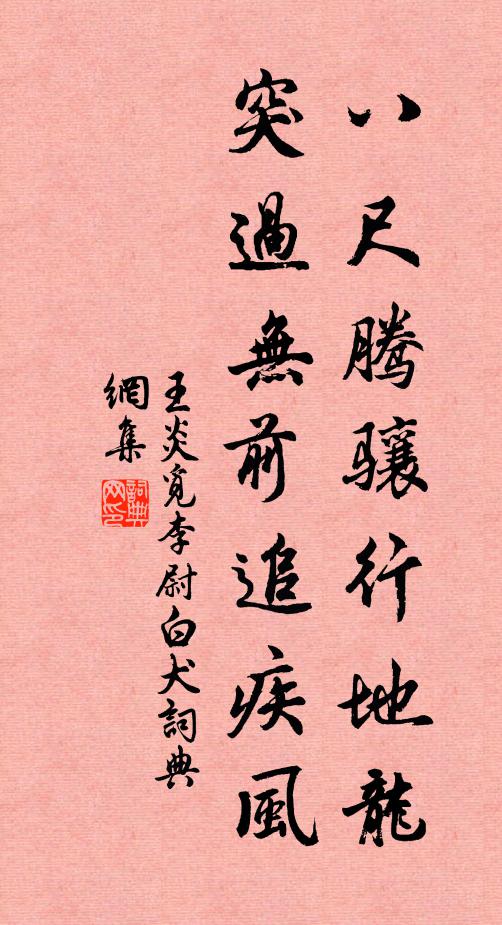 八尺腾骧行地龍
突過無前追疾風
王炎覓李尉白犬詞典
網集
詞典
网印